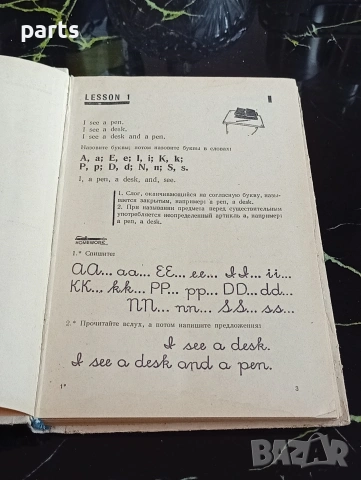 parts
LESSON 1
I see a pen.
I see a desk.
I see a desk and a pen.
Назовите буквы; потом назовите буквы в словах:
A, a; E, e; I, i; K, k;
P, p; D, d; N, n; S, s.
I, a pen, a desk, and, see.
1. Слог, оканчивающийся на согласную букву, назы-
вается закрытым, например: a pen, a desk.
2. При назывании предмета перед существительным
употребляется неопределенный артикль a, например:
a pen, a desk.
HOMEWORK
1.* Спишите:
AA... aa... EE... ee... II... ii...
KK... kk... PP... pp... DD... dd...
NN... nn... SS... ss...
2.* Прочитайте вслух, а потом напишите предложения:
I see a desk.
I see a desk and a pen.
1*
3
BAZAR